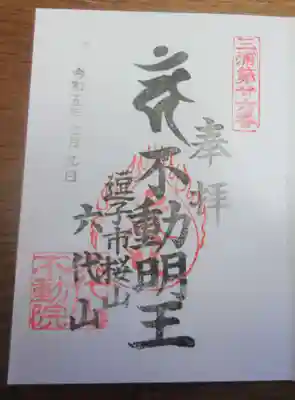 三浦第廿六番
奉拝
不動明王
逗子市桜山
六代山
不動院
令和五年 月九日